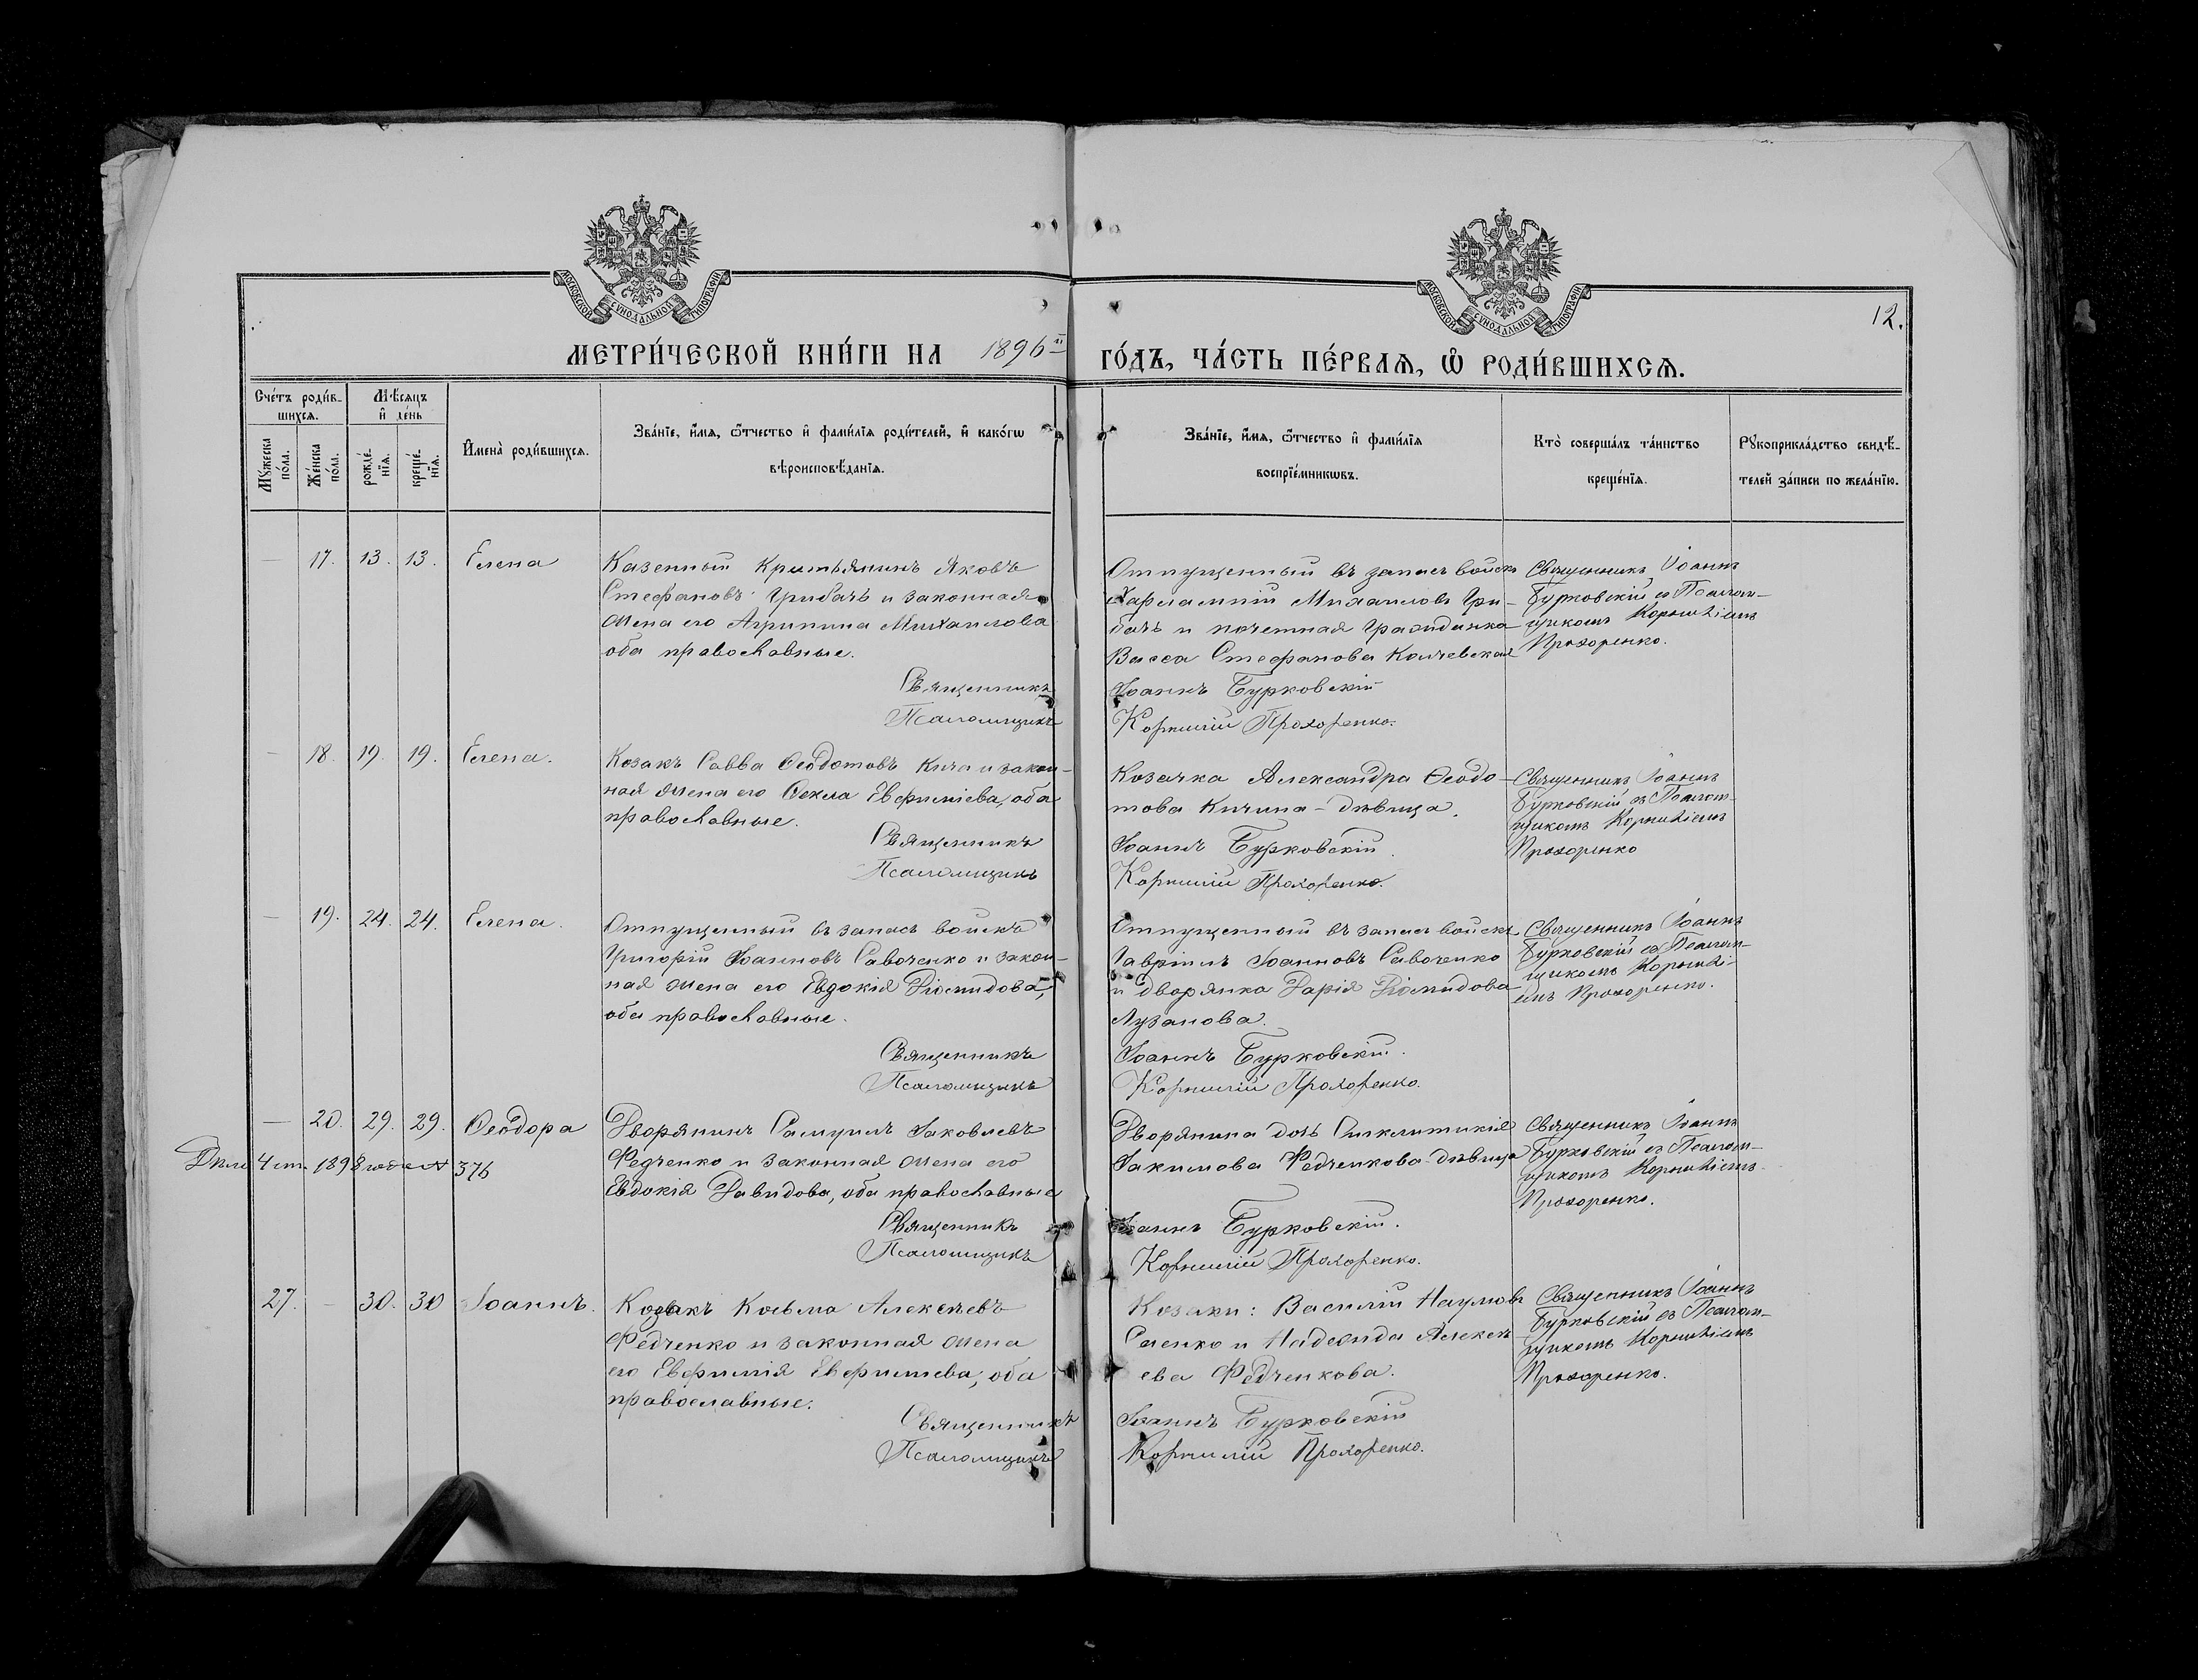 МОСКОВСКОЙ СѴНОДАЛЬНОЙ ТИПОГРАФІИ
МОСКОВСКОЙ СѴНОДАЛЬНОЙ ТИПОГРАФІИ
12.
МЕТРИ́ЧЕСКОЙ КНИ́ГИ НА 1896й ГО́ДЪ, ЧА́СТЬ ПЕ́РВАѦ, Ѡ҆ РОДИ́ВШИХСѦ.
Сче́тъ роди́в-
шихсѧ.
Мꙋ́жеска по́ла.
Же́нска по́ла.
Мѣ́сѧцъ
и҆ де́нь
рожде́-
нїѧ.
креще́-
нїѧ.
И҆мена̀ роди́вшихсѧ.
Зва́нїе, и҆́мѧ, ѻ҆́тчество и҆ фами́лїѧ роди́телей, и҆ како́гѡ
вѣроисповѣ́данїѧ.
Зва́нїе, и҆́мѧ, ѻ҆́тчество и҆ фами́лїѧ
воспрїе́мникѡвъ.
Кто̀ соверша́лъ та́инство
креще́нїѧ.
Рꙋкоприкла́дство свидѣ́-
телей за́писи по жела́нїю.
— 17. 13. 13. Елена
Казенный Крестьянинъ Яковъ
Стефановъ Грибачъ и законная
жена его Агрипина Михаилова
оба православные.
Священникъ
Псаломщикъ
Отпущенный въ запасъ войскъ
Харлампій Михаиловъ Гри-
бачъ и почетная гражданка
Васса Стефанова Колчевская
Іоаннъ Бурковскій
Корнилій Прохоренко.
Священникъ Іоаннъ
Бурковскій съ Псалом-
щикомъ Корниліемъ
Прохоренко.
— 18. 19. 19. Елена.
Козакъ Савва Ѳеодотовъ Кича и закон-
ная жена его Ѳекла Евфиміева, оба
православные.
Священникъ
Псаломщикъ
Козачка Александра Ѳеодо-
това Кичина - дѣвица.
Іоаннъ Бурковскій
Корнилій Прохоренко.
Священникъ Іоаннъ
Бурковскій съ Псалом-
щикомъ Корниліемъ
Прохоренко
— 19. 24. 24. Елена.
Отпущенный въ запасъ войскъ
Григорій Іоанновъ Савоченко и закон-
ная жена его Евдокія Діомидова,
оба православные.
Священникъ
Псаломщикъ
Отпущенный въ запасъ войскъ
Гавріилъ Іоанновъ Савоченко
и дворянка Дарія Діомидова
Лузанова.
Іоаннъ Бурковскій.
Корнилій Прохоренко.
Священникъ Іоаннъ
Бурковскій съ Псалом-
щикомъ Корнилі-
емъ Прохоренко.
— 20. 29. 29. Ѳеодора
1898 года № 376
Дворянинъ Самуилъ Іаковлевъ
Федченко и законная жена его
Евдокія Давидова, оба православные
Священникъ
Псаломщикъ
Дворянина дочь Синклитикія
Іакимова Федченкова - дѣвица
Іоаннъ Бурковскій.
Корнилій Прохоренко.
Священникъ Іоаннъ
Бурковскій съ Псалом-
щикомъ Корниліемъ
Прохоренко.
27. — 30. 30 Іоаннъ.
Козакъ Косьма Алексѣевъ
Федченко и законная жена
его Евфимія Евфимиева, оба
православные.
Священникъ
Псаломщикъ
Козаки: Василій Наумовъ
и Надежда Алексѣ-
ева Федченкова.
Іоаннъ Бурковскій
Корнилій Прохоренко.
Священникъ Іоаннъ
Бурковскій съ Псалом-
щикомъ Корниліемъ
Прохоренко.